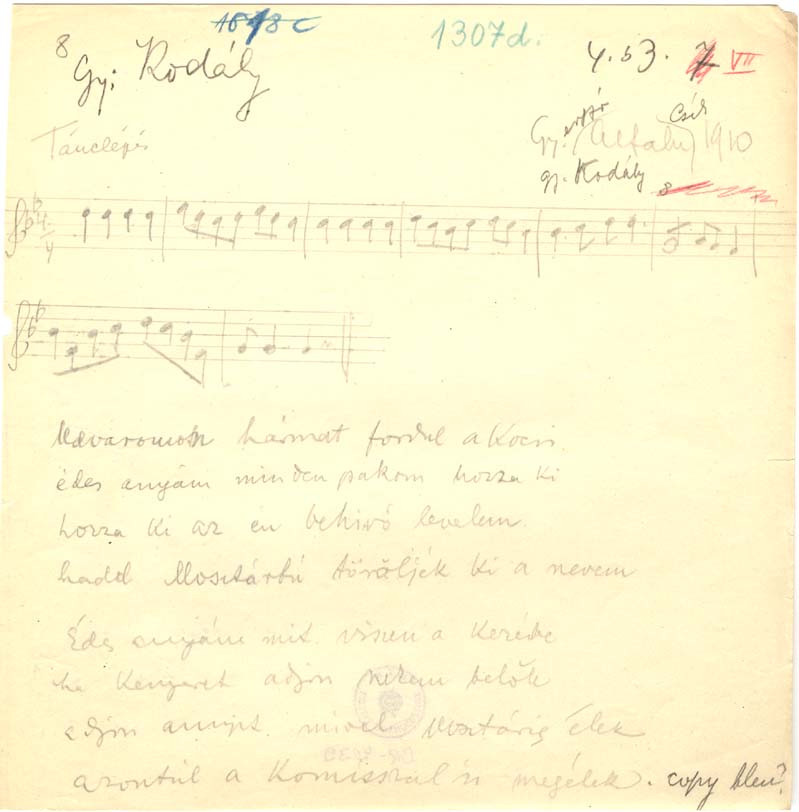 8
1678 c
1307d.
Gy: Kodály
4.53. 7 VII
Tánclépés
Csík
1910
gy. Kodály
8
4/4
hármat fordul a Kocsi
édes anyám minden pakom hozza ki
hozza ki az én behivó levelem.
hadd Mosztárbú töröljék ki a nevem
Édes anyám mit viszen a Kezébe
ha Kenyeret adjon nekem belőle
adjon annyit mivel Mosztárig élek
azontúl a Komisszal is megélek. copy bleu?